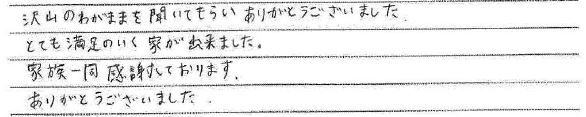 沢山のわがままを聞いてもらいありがとうございました.
とても満足のいく家が出来ました。
家族一同感謝しております.
ありがとうございました.